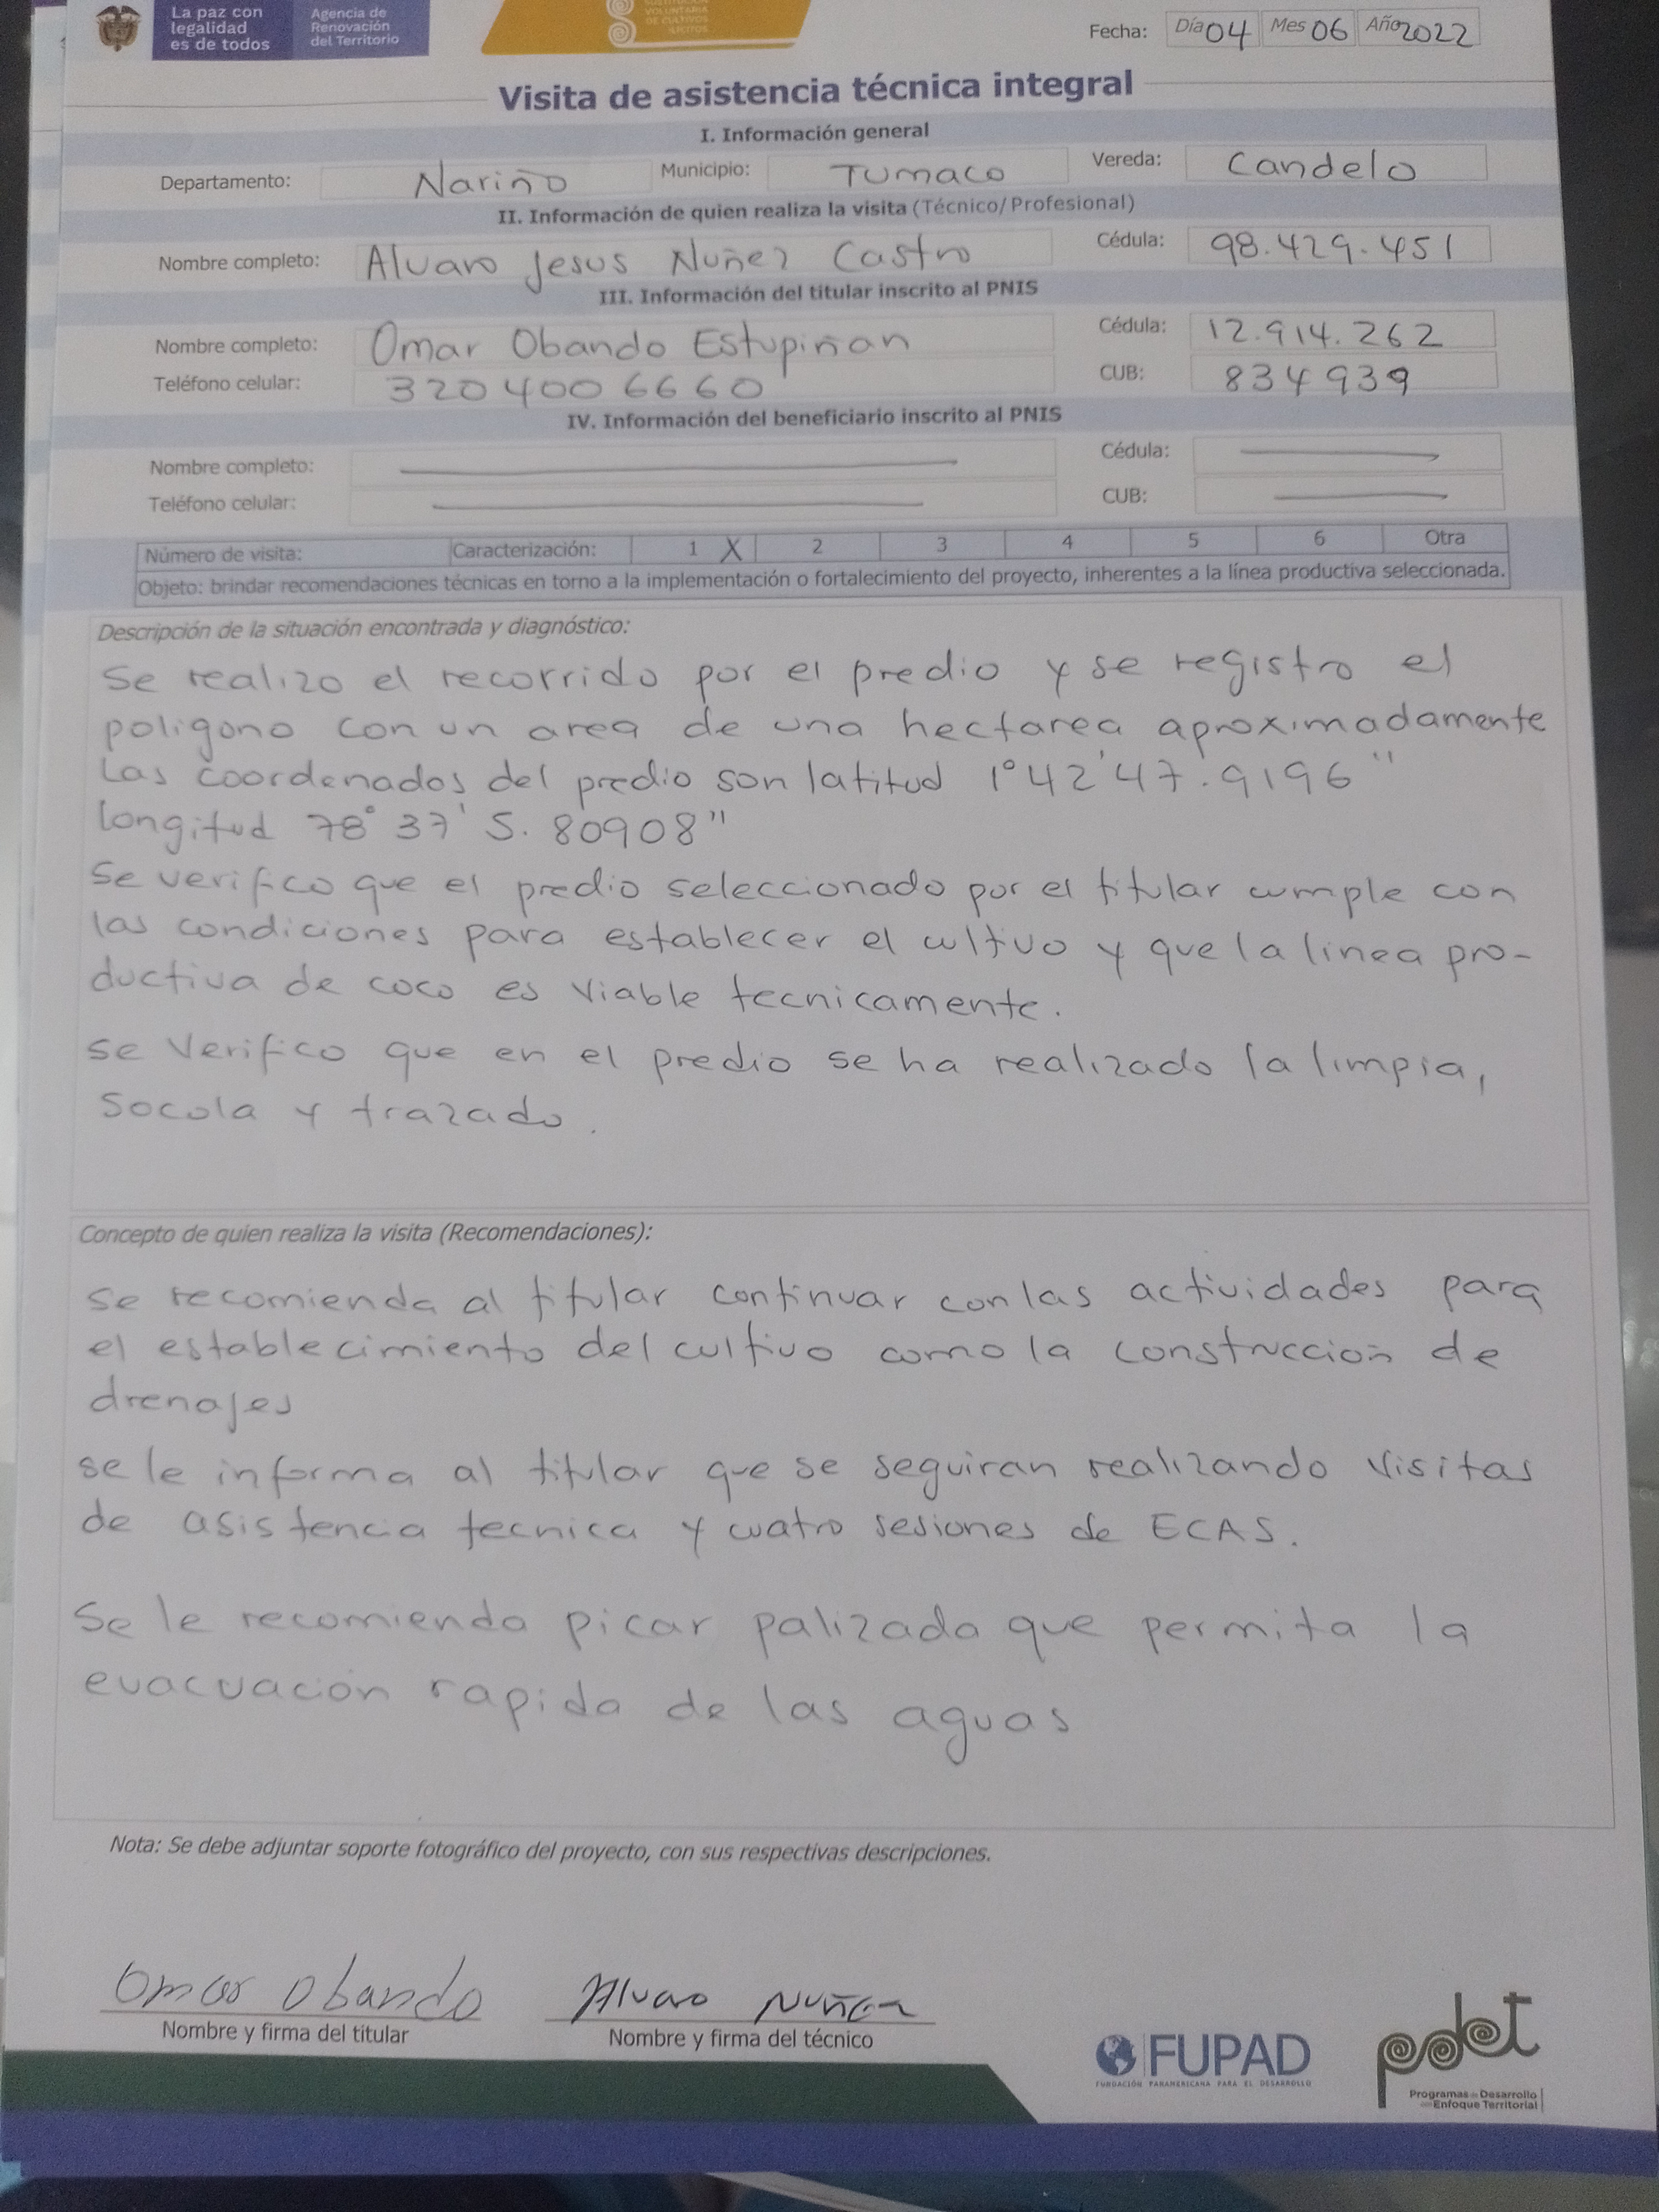 La paz con
legalidad
es de todos
Agencia de
Renovación
del Territorio
VOLUNTARIA
DE CULTIVOS
ILÍCITOS
Fecha: Día 04 Mes 06 Año 2022
Visita de asistencia técnica integral
I. Información general
Departamento: Nariño Municipio: Tumaco Vereda: Candelo
II. Información de quien realiza la visita (Técnico/Profesional)
Nombre completo: Alvaro Jesus Nuñez Castro Cédula: 98.429.451
III. Información del titular inscrito al PNIS
Nombre completo: Omar Obando Estupiñan Cédula: 12.914.262
Teléfono celular: 320 400 6660 CUB: 834939
IV. Información del beneficiario inscrito al PNIS
Nombre completo: Cédula:
Teléfono celular: CUB:
Número de visita: Caracterización: 1 X 2 3 4 5 6 Otra
Objeto: brindar recomendaciones técnicas en torno a la implementación o fortalecimiento del proyecto, inherentes a la línea productiva seleccionada.
Descripción de la situación encontrada y diagnóstico:
Se realizo el recorrido por el predio y se registro el
poligono con un area de una hectarea aproximadamente
Las coordenadas del predio son latitud 1° 42' 47.9196"
longitud 78° 37' 5.80908"
Se verifico que el predio seleccionado por el titular cumple con
las condiciones para establecer el cultivo y que la linea pro-
ductiva de coco es viable tecnicamente.
Se verifico que en el predio se ha realizado la limpia,
Socola y trazado.
Concepto de quien realiza la visita (Recomendaciones):
Se recomienda al titular continuar con las actividades para
el establecimiento del cultivo como la construccion de
drenajes
se le informa al titular que se seguiran realizando visitas
de asistencia tecnica y cuatro sesiones de ECAS.
Se le recomienda picar palizada que permita la
evacuación rapida de las aguas
Nota: Se debe adjuntar soporte fotográfico del proyecto, con sus respectivas descripciones.
Omar Obando Alvaro Nuñez
Nombre y firma del titular Nombre y firma del técnico
FUPAD
FUNDACIÓN PANAMERICANA PARA EL DESARROLLO
pdet
Programas de Desarrollo
con Enfoque Territorial